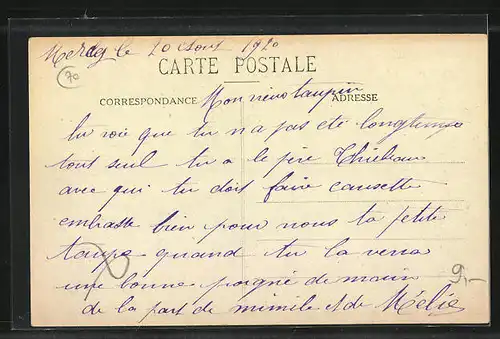 le 20 Aout 1920
70
CARTE POSTALE
CORRESPONDANCE Mon vieux taupin ADRESSE
tu voie que tu n a pas ete longtemps
tout seul tu a le père Thiebaux
avec qui tu doit faire causette
embrasse bien pour nous ta petite
taupe quand tu la verra
une bonne poigné de main
9.-
de la part de mimile et de Mélie